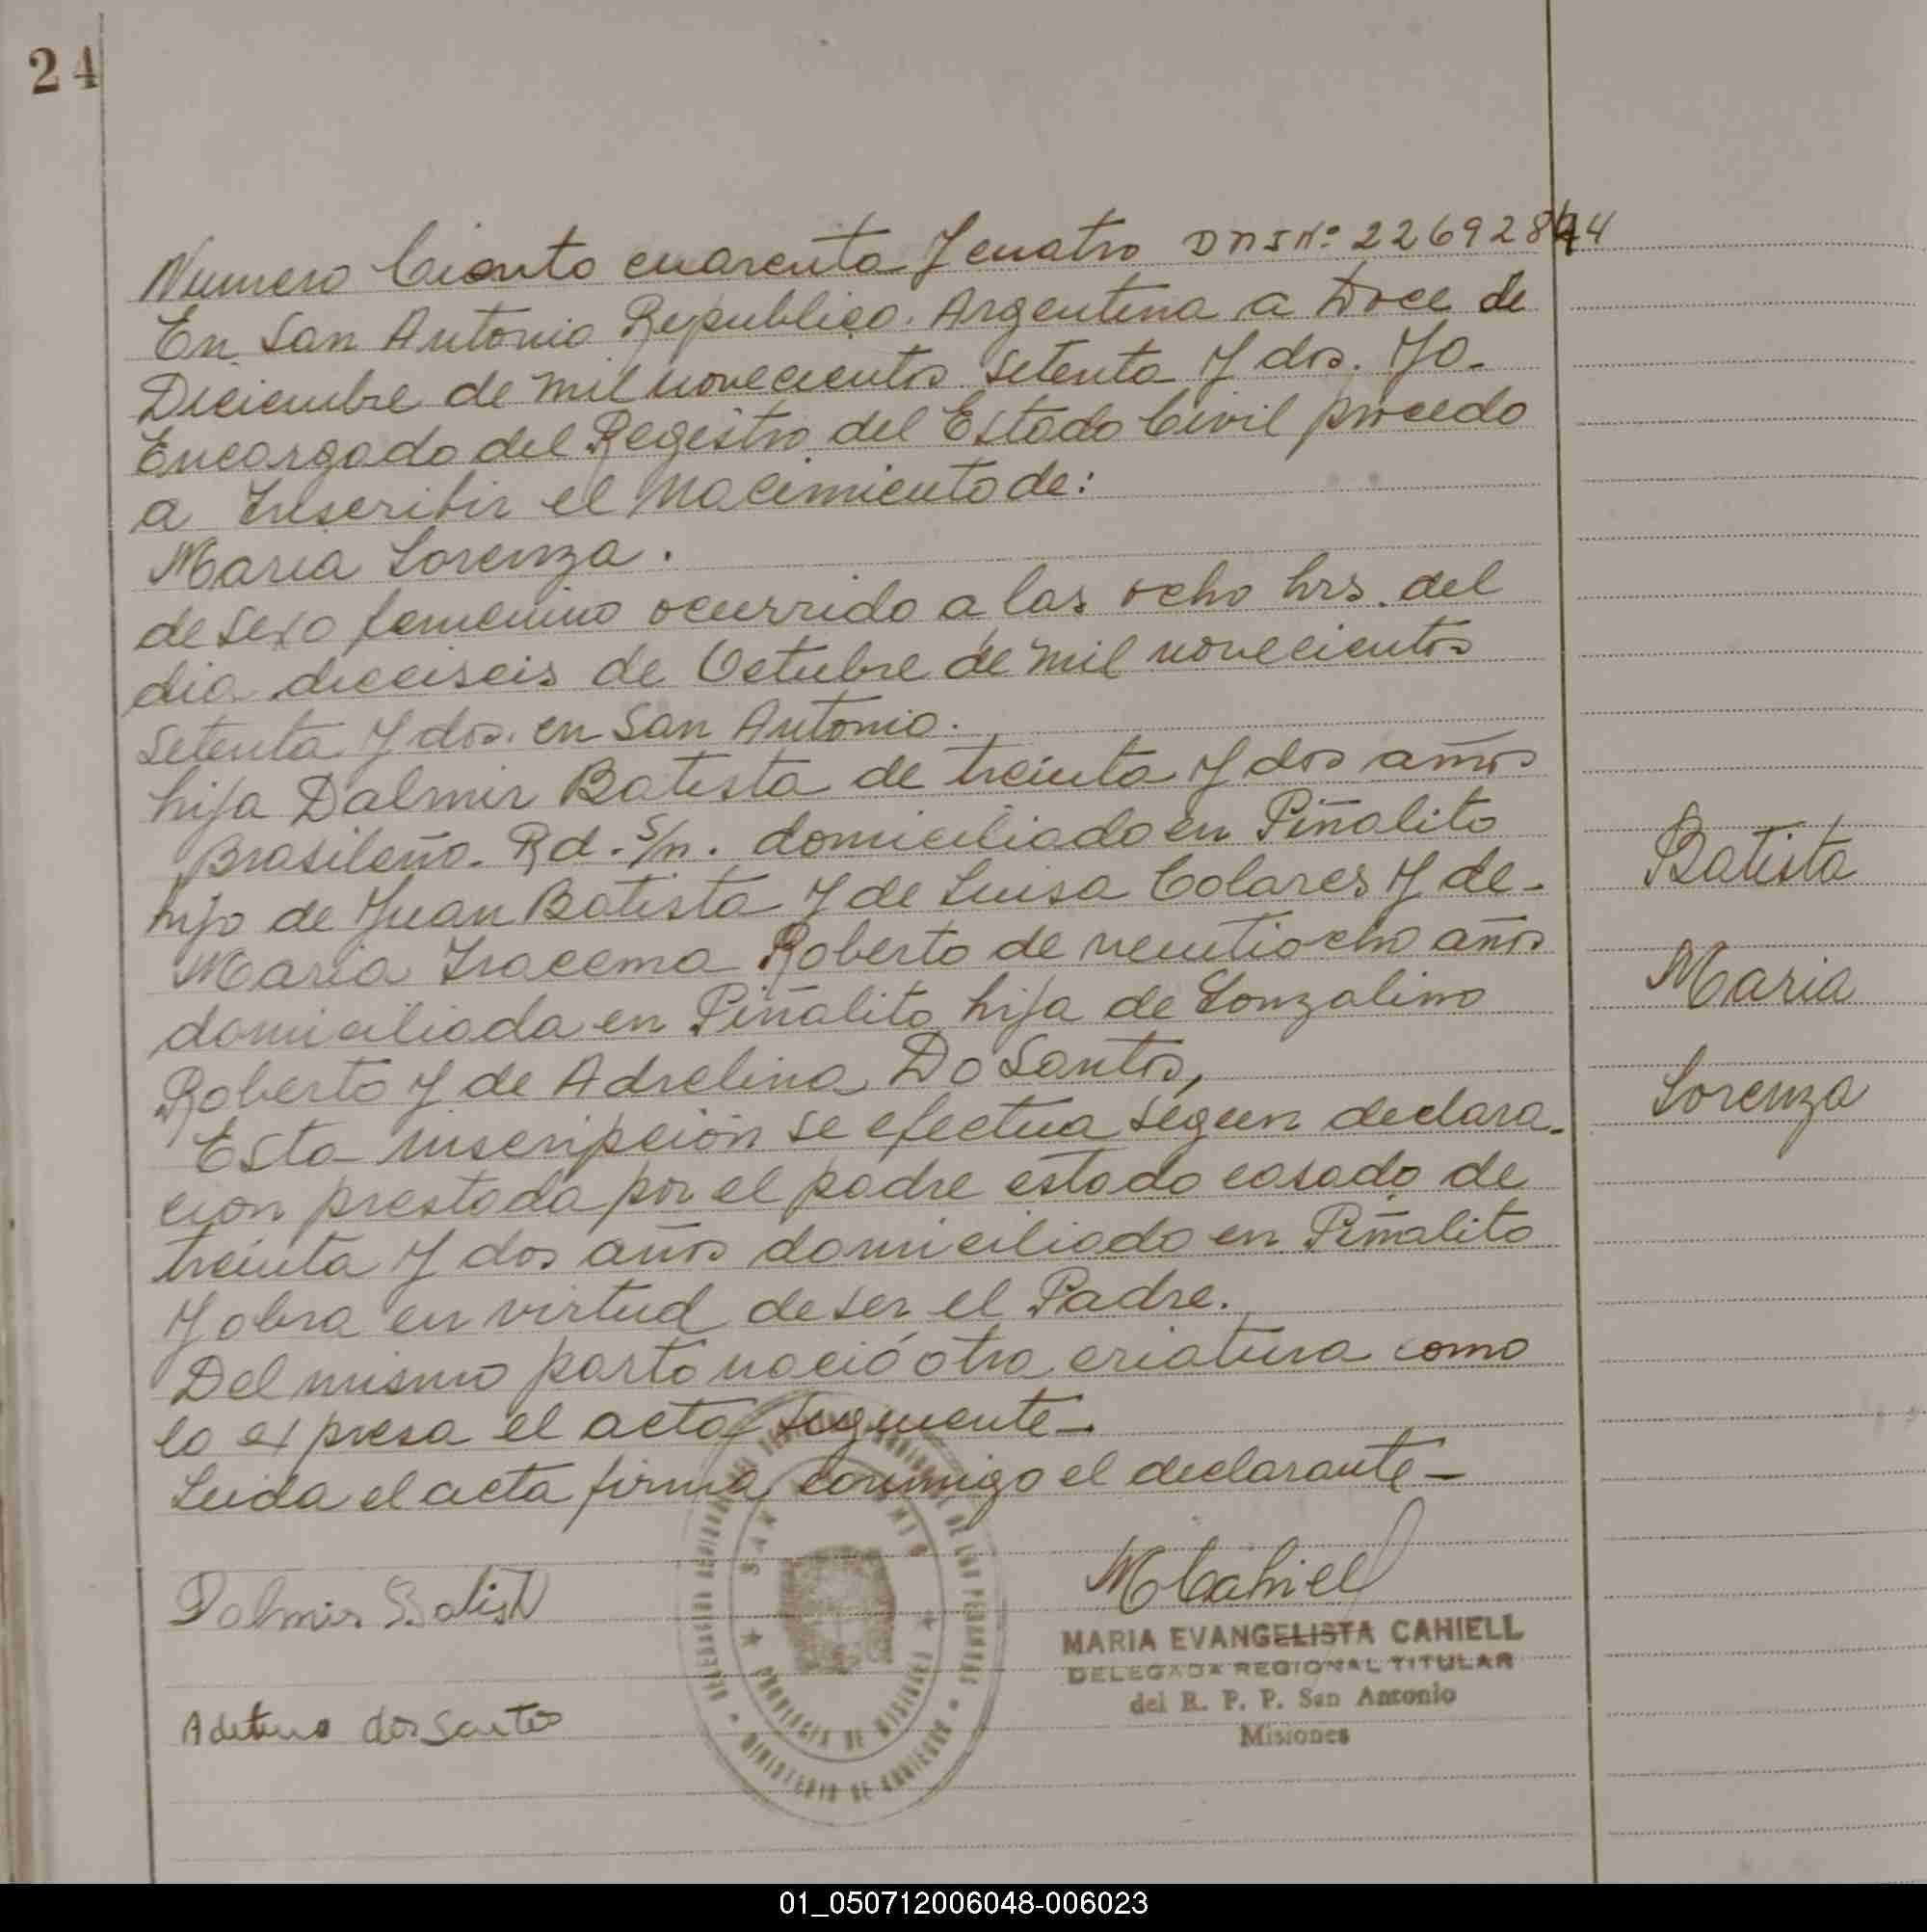 24
Numero Ciento cuarenta y cuatro DNI Nº 22692844
En San Antonio Republica Argentina a Doce de
Diciembre de mil novecientos setenta y dos. Yo-
Encargado del Registro del Estado Civil procedo
a Inscribir el Nacimiento de:
Maria Lorenza.
de sexo femenino ocurrido a las ocho hrs. del
dia dieciseis de Octubre de mil novecientos
setenta y dos. en San Antonio.
hija Dalmir Batista de treinta y dos años
Brasileño. Rd. S/n. domiciliado en Piñalito
Batista
hijo de Juan Batista y de Luisa Colares y de-
Maria Iracema Roberto de ventiocho años
Maria
domiciliada en Piñalito hija de Lonzalino
Roberto y de Adrelina Do Santos,
Lorenza
Esta inscripción se efectua segun declara-
cion prestada por el padre estado casado de
treinta y dos años domiciliado en Piñalito
y obra en virtud de ser el Padre.
Del mismo parto nació otra criatura como
lo expresa el acta siguiente-
Leida el acta firma conmigo el declarante-
Dalmir Batist
MCahiell
MARIA EVANGELISTA CAHIELL
DELEGADA REGIONAL TITULAR
del R. P. P. San Antonio
Misiones
dos Santos
PROVINCIA DE MISIONES
MINISTERIO DE GOBIERNO
01_050712006048-006023